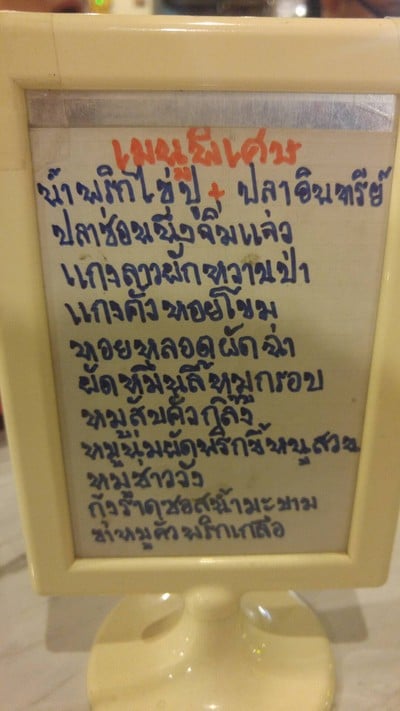 เมนูพิเศษ
น้ำพริกไข่ปู + ปลาอินทรีย์
ปลาช่อนนึ่งจิ้มแจ่ว
แกงลาวผักหวานป่า
แกงคั่วหอยโขม
หอยหลอดผัดฉ่า
ผัดหมี่หมูกรอบ
หมูสับคั่วกลิ้ง
หมูนุ่มผัดพริกขี้หนูสวน
หมูชาววัง
กุ้งราดซอสน้ำมะขาม
ขาหมูคั่วพริกเกลือ